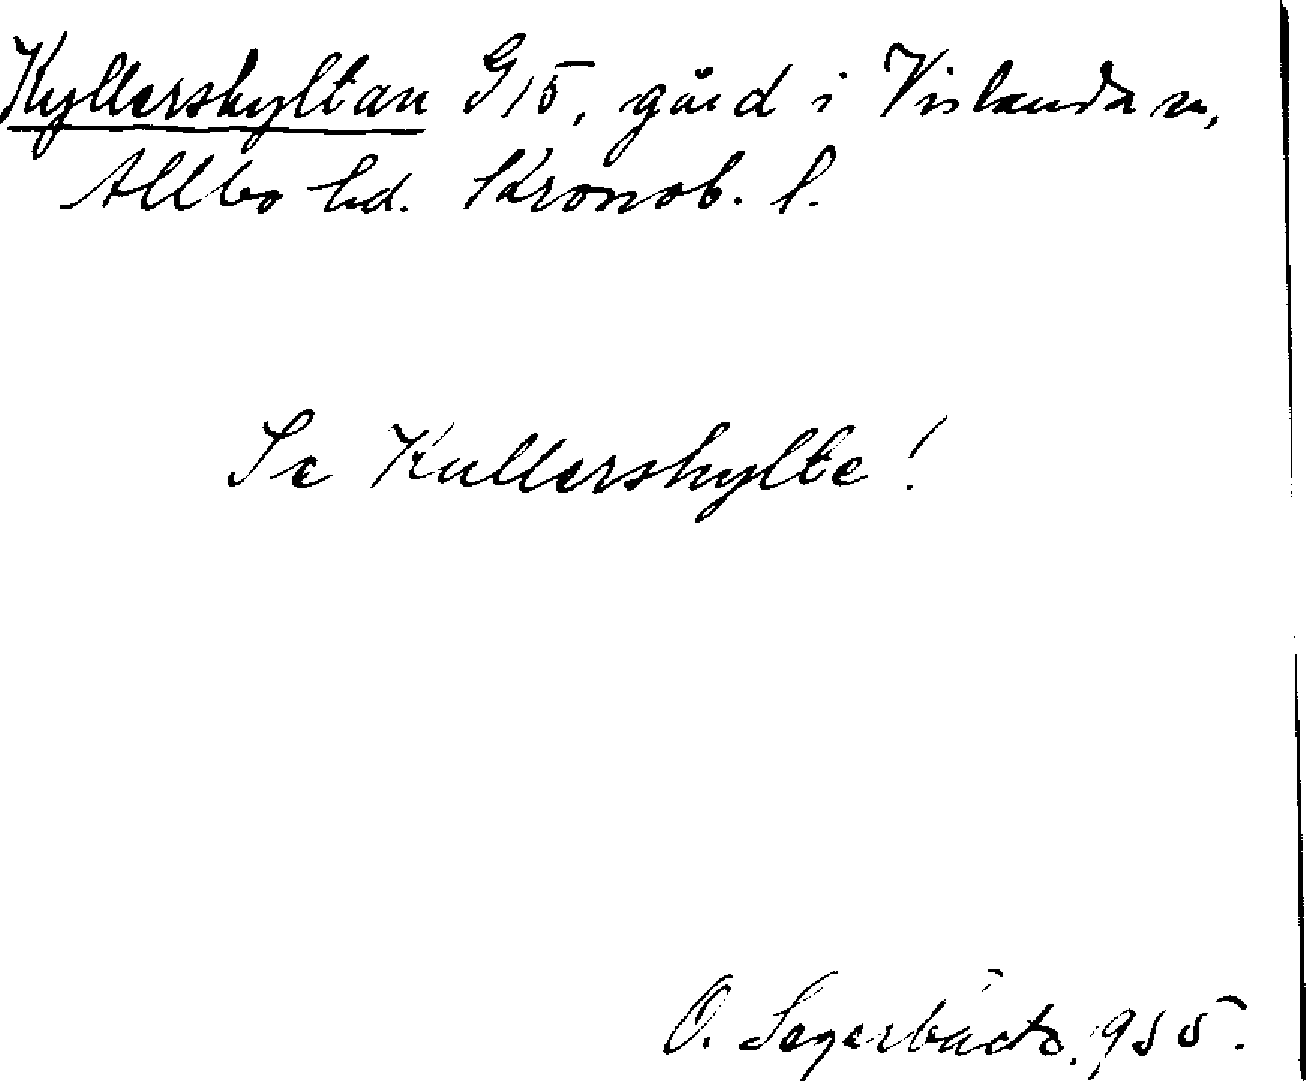 Kyllershyltan G15, gård i Vislanda sn,
Allbo hd. Kronob. l.
Se Kullershylte!
O. Segerbäck. 955.